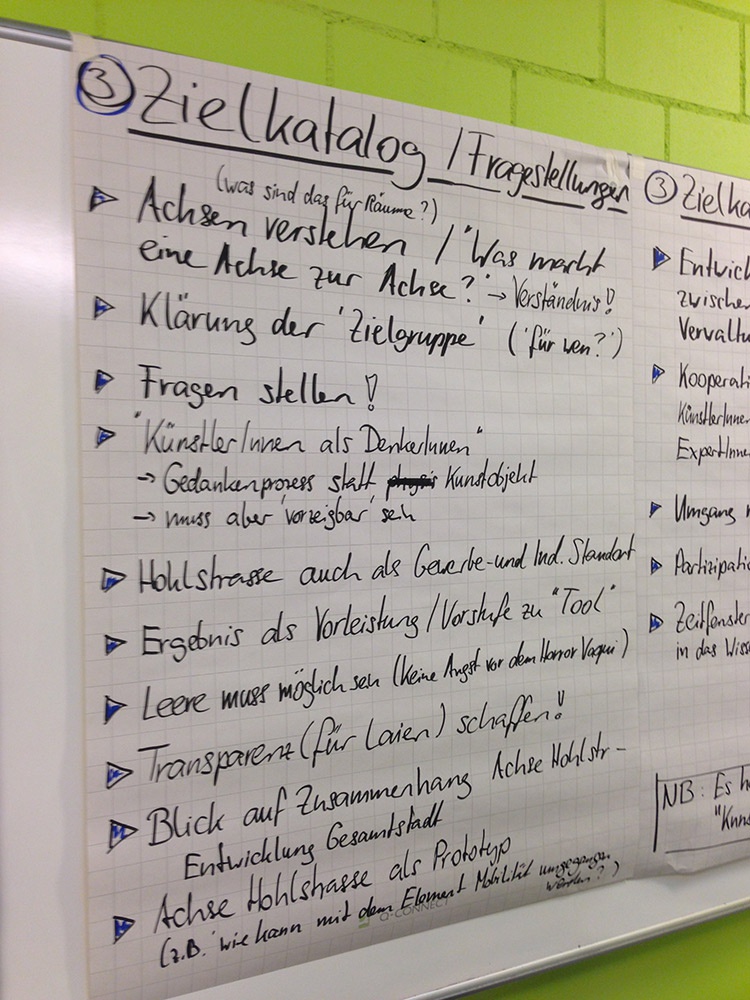 ③ Zielkatalog / Fragestellungen
(was sind das für Räume?)
Achsen verstehen / "Was macht
eine Achse zur Achse?" → Verständnis!
Klärung der 'Zielgruppe' ('für wen?')
Fragen stellen!
"KünstlerInnen als DenkerInnen"
→ Gedankenprozess statt Kunstobjekt
→ muss aber 'vorzeigbar' sein
Hohlstrasse auch als Gewerbe- und Ind. Standort
Ergebnis als Vorleistung / Vorstufe zu "Tool"
Leere muss möglich sein (keine Angst vor dem Horror Vaqui)
Transparenz (für Laien) schaffen!
Blick auf Zusammenhang Achse Hohlstr-
Entwicklung Gesamtstadt
Achse Hohlstrasse als Prototyp
(z.B. 'wie kann mit dem Element Mobilität umgegangen
werden?')
Q-CONNECT
③ Zielka
Entwick
zwischen
Verwaltu
Kooperati
KünstlerInne
ExpertInne
Umgang
Partizipatio
Zeitfenster
in das Wiss
NB: Es h
"Kuns